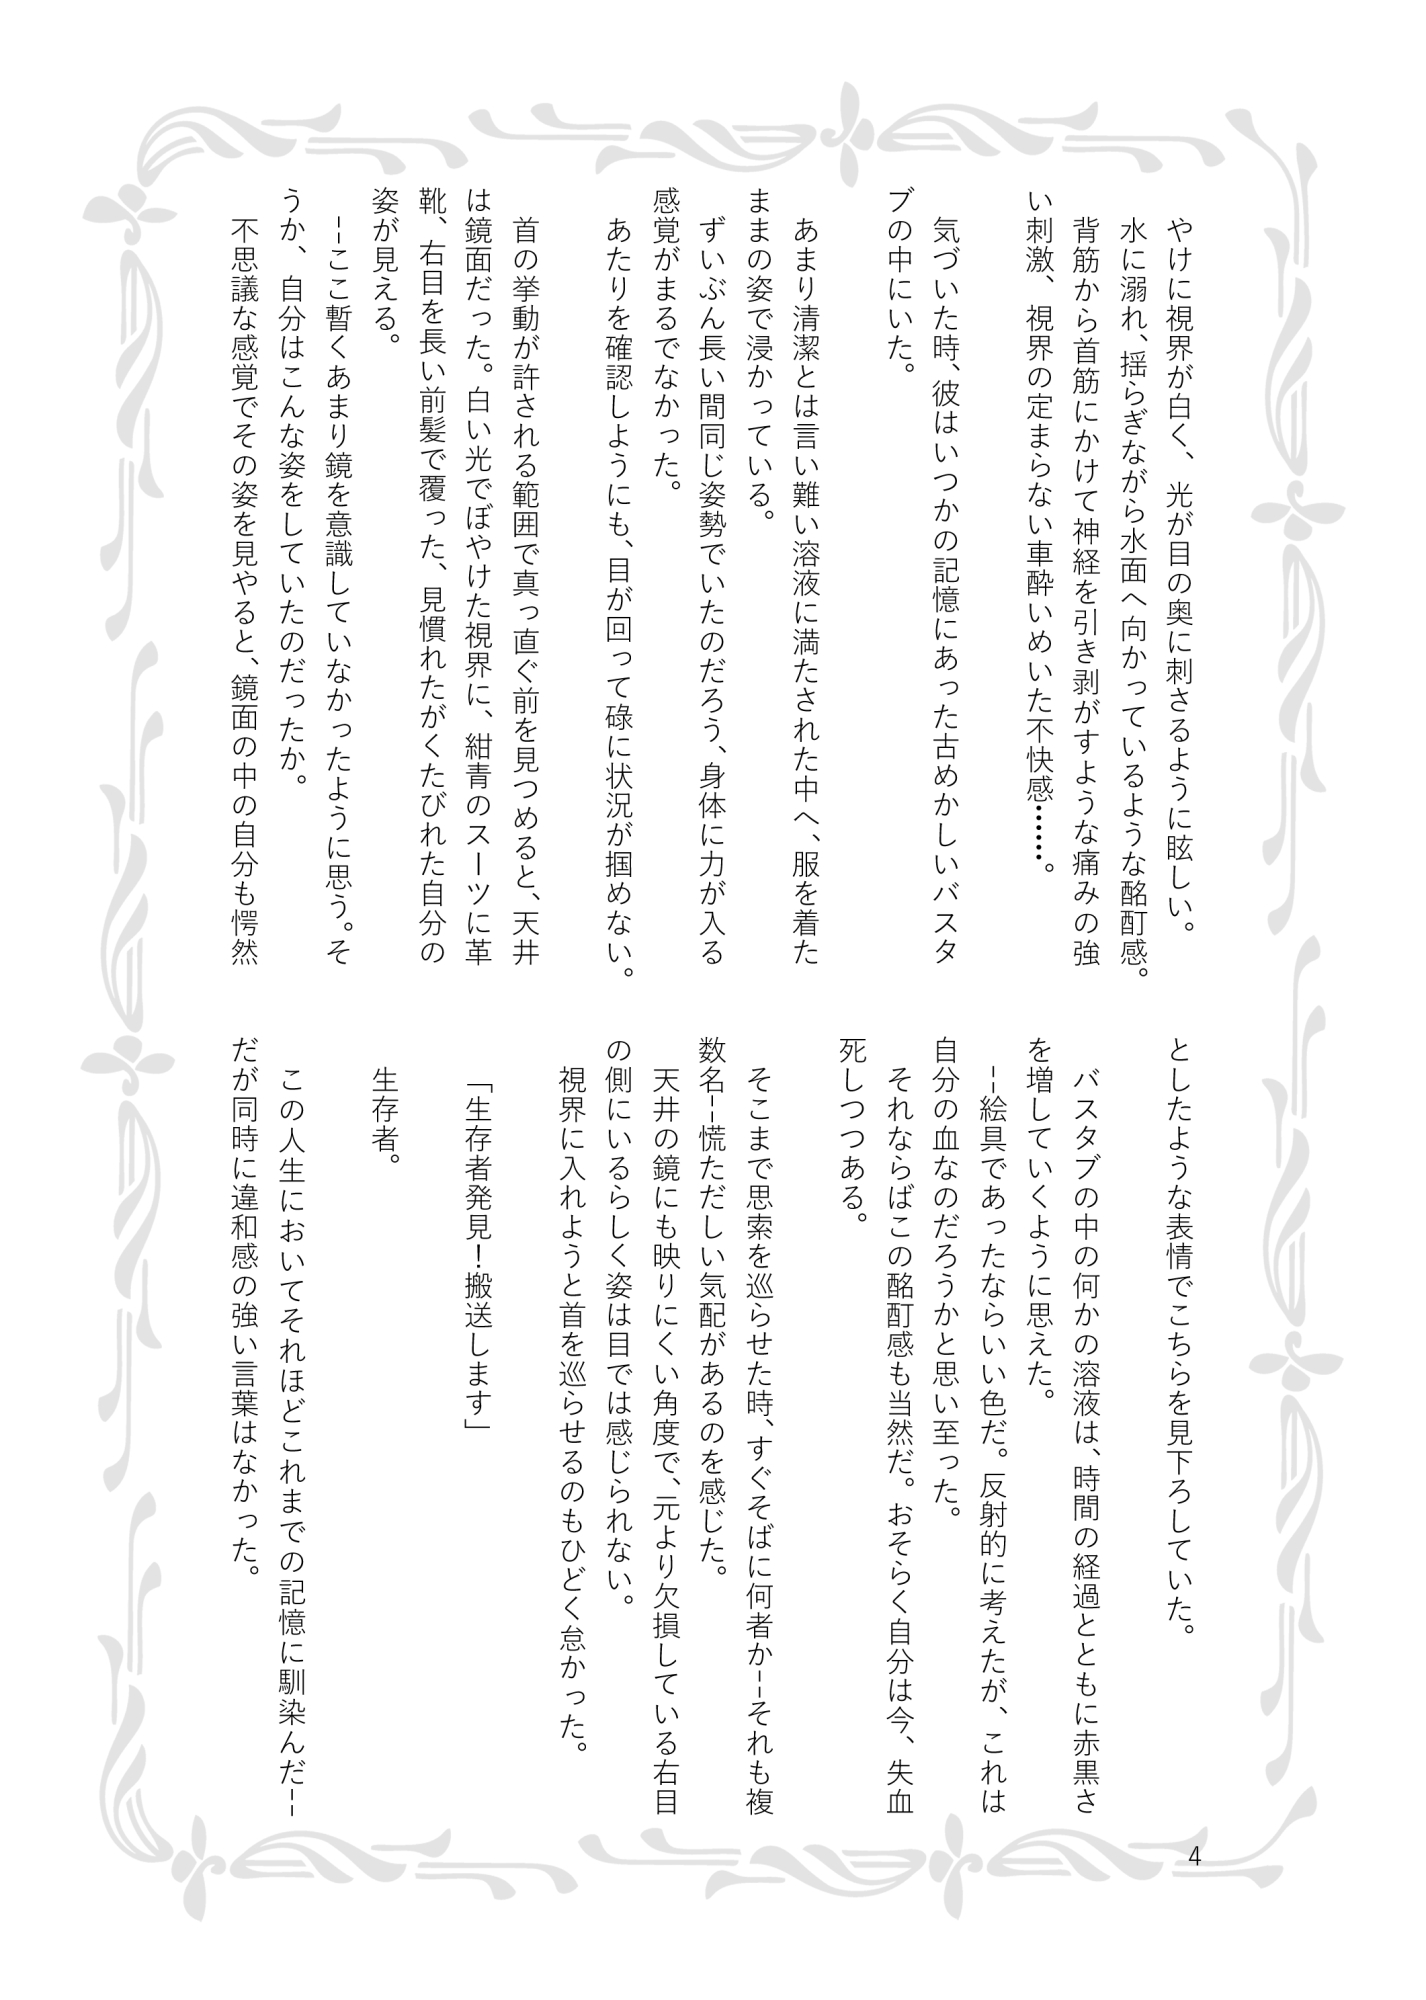 やけに視界が白く、光が目の奥に刺さるように眩しい。
　水に溺れ、揺らぎながら水面へ向かっているような酩酊感。
　背筋から首筋にかけて神経を引き剥がすような痛みの強
い刺激、視界の定まらない車酔いめいた不快感……。
　気づいた時、彼はいつかの記憶にあった古めかしいバスタ
ブの中にいた。
　あまり清潔とは言い難い溶液に満たされた中へ、服を着た
ままの姿で浸かっている。
　ずいぶん長い間同じ姿勢でいたのだろう、身体に力が入る
感覚がまるでなかった。
　あたりを確認しようにも、目が回って碌に状況が掴めない。
　首の挙動が許される範囲で真っ直ぐ前を見つめると、天井
は鏡面だった。白い光でぼやけた視界に、紺青のスーツに革
靴、右目を長い前髪で覆った、見慣れたがくたびれた自分の
姿が見える。
　--ここ暫くあまり鏡を意識していなかったように思う。そ
うか、自分はこんな姿をしていたのだったか。
　不思議な感覚でその姿を見やると、鏡面の中の自分も愕然
としたような表情でこちらを見下ろしていた。
　バスタブの中の何かの溶液は、時間の経過とともに赤黒さ
を増していくように思えた。
　--絵具であったならいい色だ。反射的に考えたが、これは
自分の血なのだろうかと思い至った。
　それならばこの酩酊感も当然だ。おそらく自分は今、失血
死しつつある。
　そこまで思索を巡らせた時、すぐそばに何者か--それも複
数名--慌ただしい気配があるのを感じた。
　天井の鏡にも映りにくい角度で、元より欠損している右目
の側にいるらしく姿は目では感じられない。
　視界に入れようと首を巡らせるのもひどく怠かった。
「生存者発見！搬送します」
　生存者。
　この人生においてそれほどこれまでの記憶に馴染んだ--
だが同時に違和感の強い言葉はなかった。
4